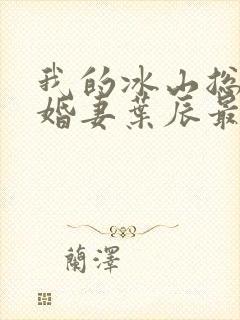 我的冰山总
婚妻葉辰最
蘭澤